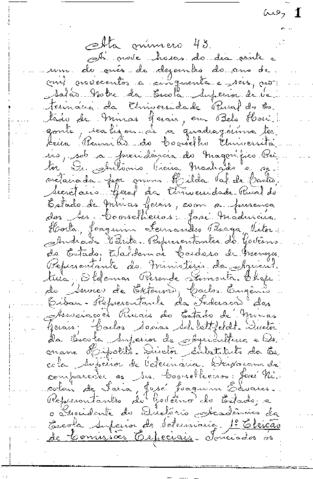 1
Ata número 43.
Às nove horas do dia vinte e
um do mês de dezembro do ano de
mil novecentos e cinquenta e seis, no
salão Nobre da Escola Superior de Ve-
terinária da Universidade Rural do Es-
tado de Minas Gerais, em Belo Hori-
zonte, realizou-se a quadragésima ter-
ceira Reunião do Conselho Universitá-
rio, sob a presidência do Magnífico Rei-
tor Dr. Antônio Vieira Machado e se-
cretariada por mim
Secretário Geral da Universidade Rural do
Estado de Minas Gerais, com a presença
dos Srs. Conselheiros: José Madureira
Horta, Joaquim Fernandes Braga,
Andrade Representantes do Governo
do Estado; Waldemar Cardoso de
Representante do Ministério da Agricul-
tura; Rezende Chefe
do Serviço de Extensão; Carlos Eugênio
Representante da Federação das
Associações Rurais do Estado de Minas
Gerais; Carlos Socias Schlottfeldt, Diretor
da Escola Superior de Agricultura e Os-
mane Hipólito, Diretor substituto da Es-
cola Superior de Veterinária. Deixaram de
comparecer os Srs. Conselheiros: José Ni-
de Faria, José Joaquim
Representantes do Governo do Estado; e
o Presidente do Diretório Acadêmico da
Escola Superior de Veterinária. 1º Eleição
de Comissões Especiais. Iniciados os